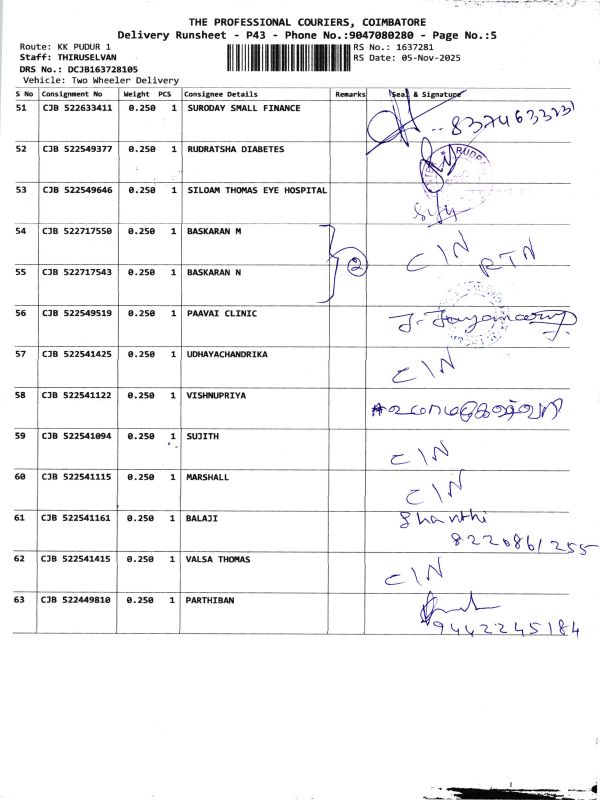 THE PROFESSIONAL COURIERS, COIMBATORE
Delivery Runsheet - P43 - Phone No.:9047080280 - Page No.:5
Route: KK PUDUR 1 RS No.: 1637281
Staff: THIRUSELVAN RS Date: 05-Nov-2025
DRS No.: DCJB163728105
Vehicle: Two Wheeler Delivery
S No Consignment No Weight PCS Consignee Details Remarks Seal & Signature
51 CJB 522633411 0.250 1 SURODAY SMALL FINANCE
52 CJB 522549377 0.250 1 RUDRATSHA DIABETES RUDRA
53 CJB 522549646 0.250 1 SILOAM THOMAS EYE HOSPITAL
54 CJB 522717550 0.250 1 BASKARAN M CIN RTN
2
55 CJB 522717543 0.250 1 BASKARAN N
56 CJB 522549519 0.250 1 PAAVAI CLINIC
57 CJB 522541425 0.250 1 UDHAYACHANDRIKA CIN
58 CJB 522541122 0.250 1 VISHNUPRIYA
59 CJB 522541094 0.250 1 SUJITH CIN
60 CJB 522541115 0.250 1 MARSHALL CIN
61 CJB 522541161 0.250 1 BALAJI Shanthi
8220861255
62 CJB 522541415 0.250 1 VALSA THOMAS CIN
63 CJB 522449810 0.250 1 PARTHIBAN
9442245184